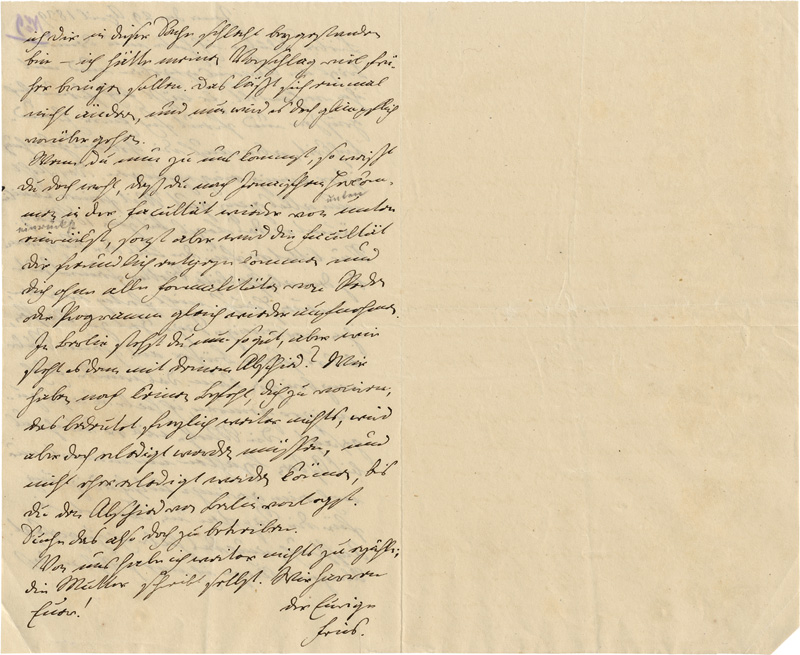 ich dir in dieser Sache schlecht beygestanden
bin – ich hätte meinen Vorschlag viel frü-
her bringen sollen. Das läßt sich einmal
nicht ändern, und nun wird es doch glücklich
vorübergehen.
Wenn du nun zu uns kommst, so weißt
du doch wohl, daß du nach Jenaischen Herkom-
men in der Facultät wieder von unten
unten
einrückst
einrückst, sonst aber wird die Facultät
dir freundlich entgegen kommen und
dich ohne alle Formalitäten von Rede
oder Programm gleich wieder aufnehmen.
In Berlin stehst du nun so gut, aber wie
steht es denn mit deinem Abschied? Wir
haben noch keinen Befehl, dich zu
das bedeutet freylich weiter nichts, wird
aber doch erledigt werden müssen, und
nicht eher erledigt werden können, bis
du den Abschied von Berlin vorlegst.
Suche das also doch zu betreiben.
Von uns habe ich weiter nichts zu erzählen;
die Mutter schreibt selbst. Wir harren
Euer!
der Eurige
Fries.